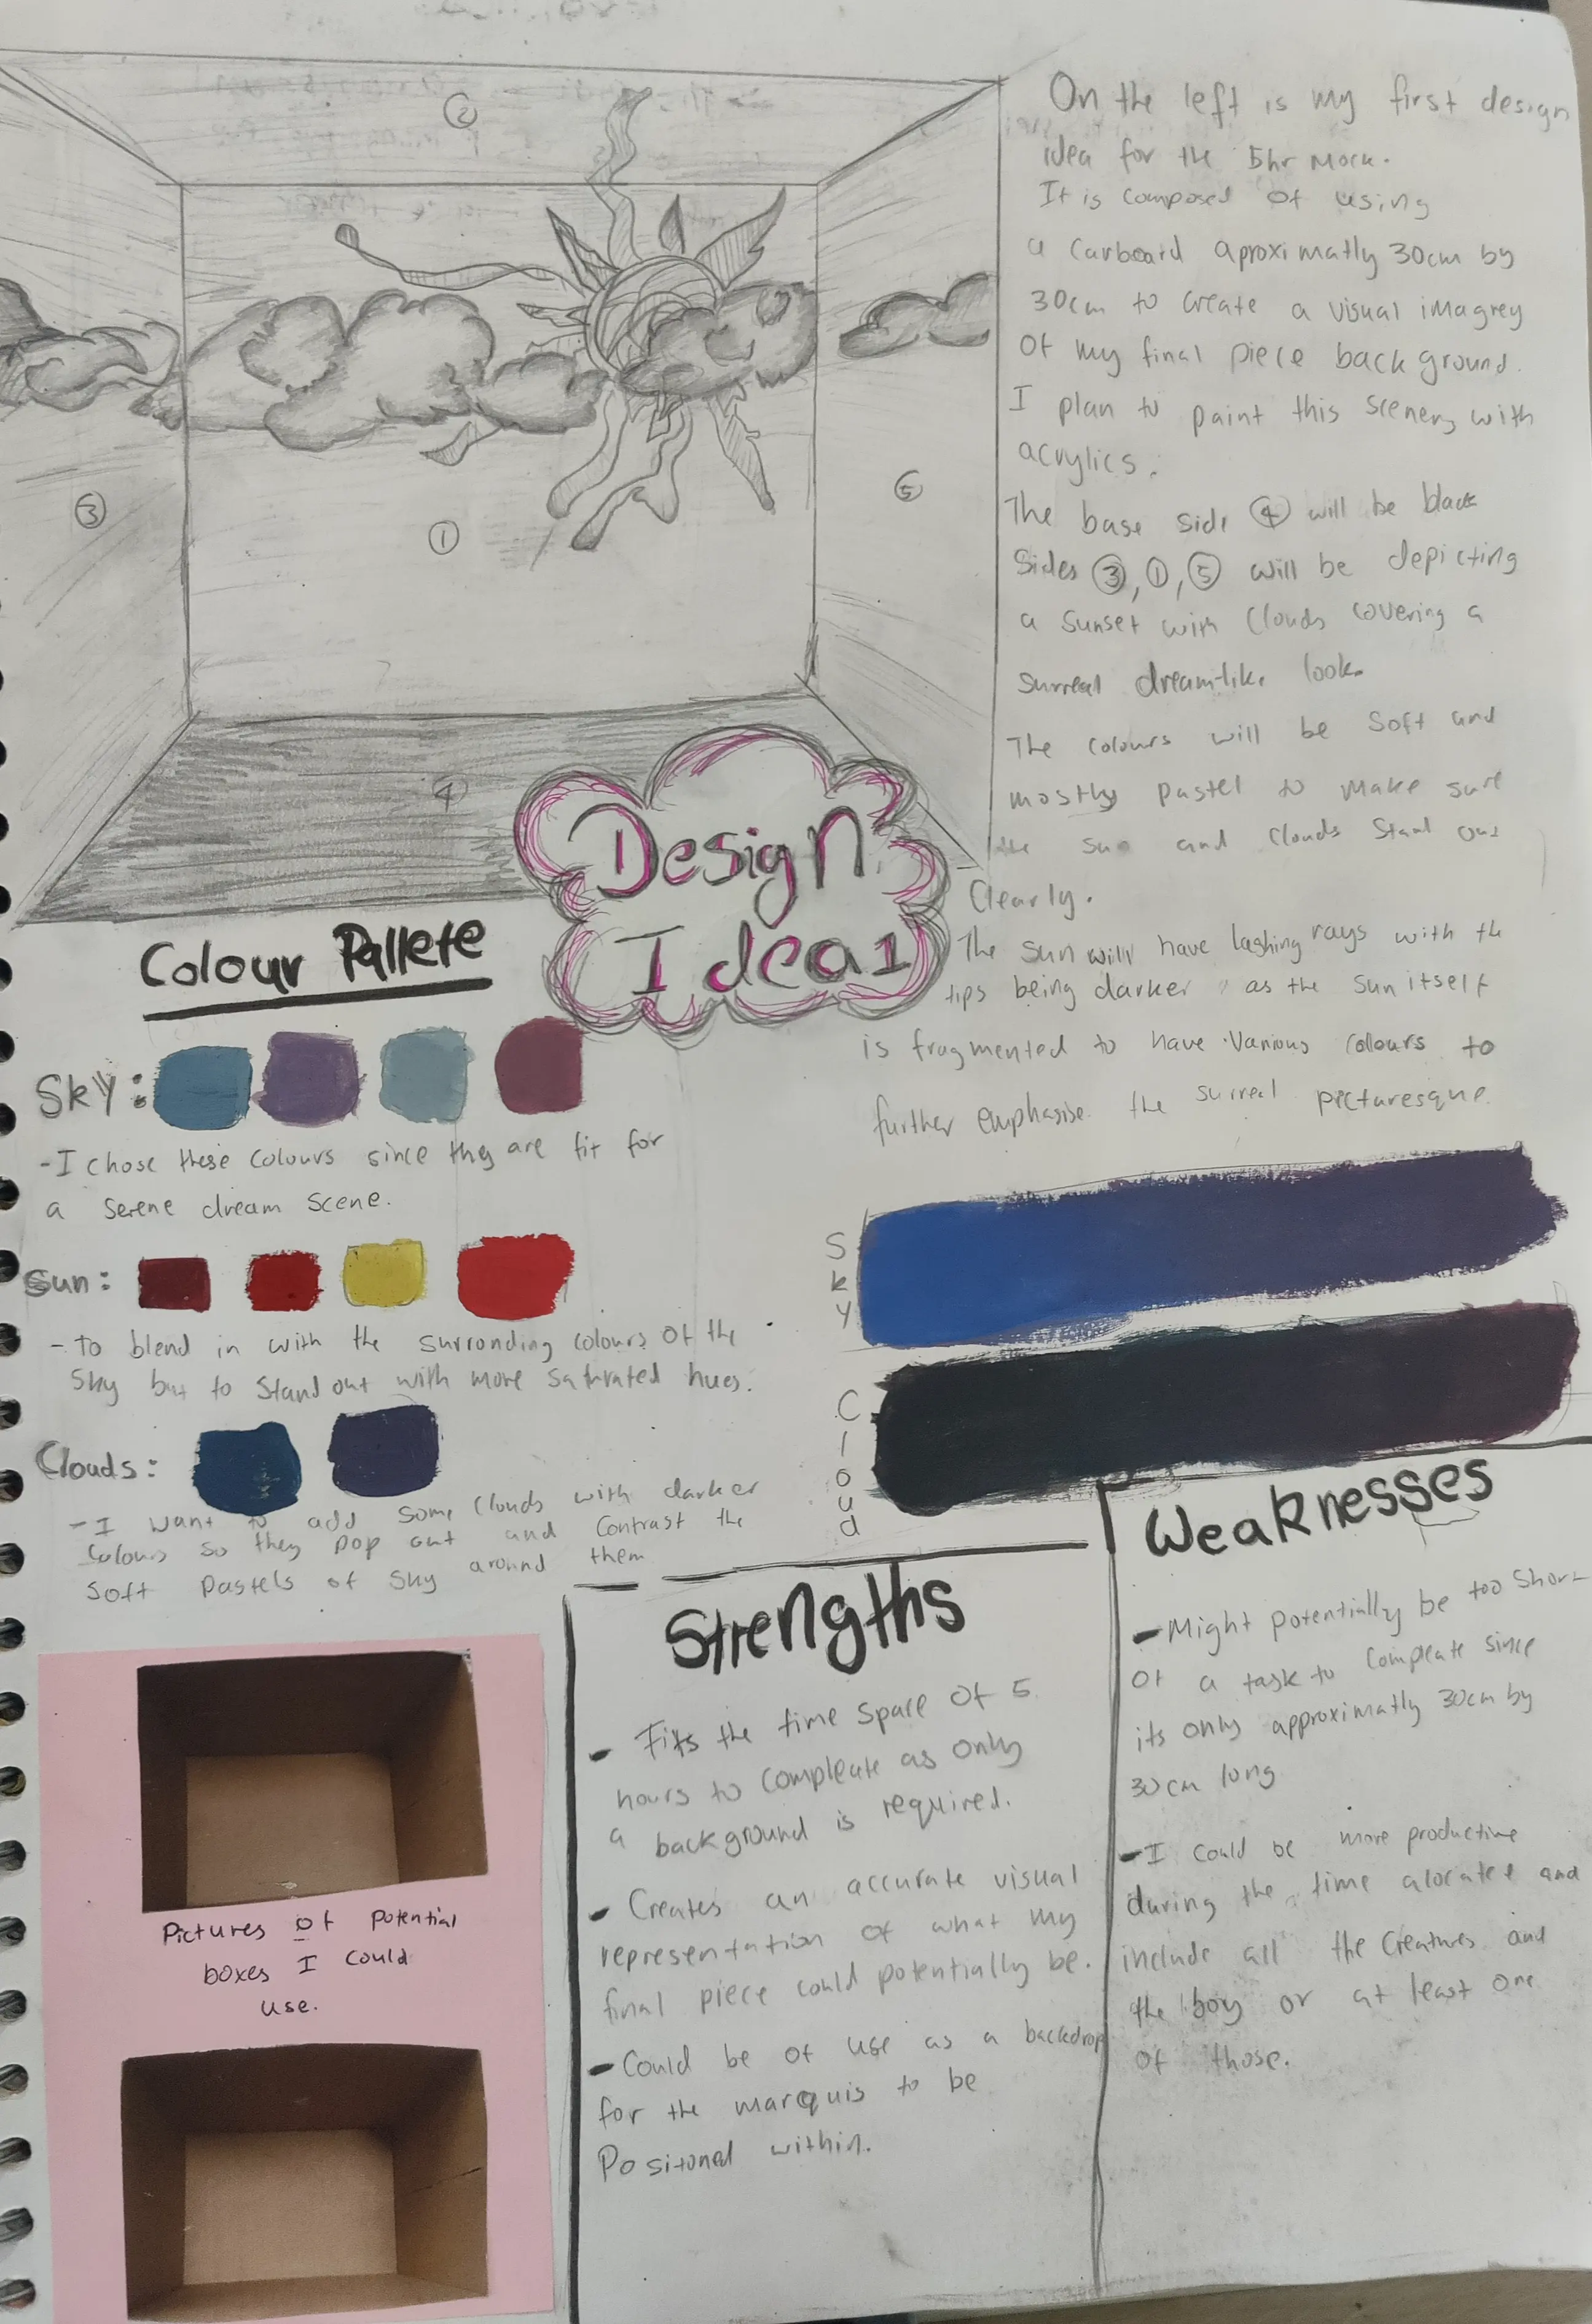 ②
③
①
⑤
④
On the left is my first design
idea for the 5hr Mock.
It is composed of using
a carboard aproximatly 30cm by
30cm to create a visual imagrey
of my final piece background.
I plan to paint this scenery with
acrylics.
The base side ④ will be black
Sides ③, ①, ⑤ will be depicting
a sunset with clouds covering a
surreal dream-like look.
The colours will be soft and
mostly pastel to make sure
the sun and clouds stand out
clearly.
The sun will have lashing rays with the
tips being darker as the sun itself
is fragmented to have various colours to
further emphasise the surreal picturesque.
Design
Idea 1
Colour Pallete
Sky:
- I chose these colours since they are fit for
a serene dream scene.
Sun:
- To blend in with the surronding colours of the
sky but to stand out with more saturated hues.
Clouds:
- I want to add some clouds with darker
colours so they pop out and contrast the
soft pastels of sky around them
Sky
Cloud
Pictures of potential
boxes I could
use.
Strengths
- Fits the time space of 5
hours to compleate as only
a background is required.
- Creates an accurate visual
representation of what my
final piece could potentially be.
- Could be of use as a backdrop
for the marquis to be
Positoned within.
Weaknesses
- Might potentially be too short
of a task to compleate since
its only approximatly 30cm by
30cm long
- I could be more productive
during the time alocated and
include all the creatures and
the boy or at least one
of those.